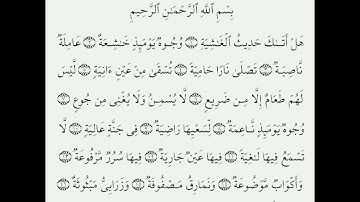 بِسْمِ ٱللَّهِ ٱلرَّحْمَـٰنِ ٱلرَّحِيمِ
هَلْ أَتَىٰكَ حَدِيثُ ٱلْغَـٰشِيَةِ ۝١ وُجُوهٌ يَوْمَئِذٍ خَـٰشِعَةٌ ۝٢ عَامِلَةٌ
نَّاصِبَةٌ ۝٣ تَصْلَىٰ نَارًا حَامِيَةً ۝٤ تُسْقَىٰ مِنْ عَيْنٍ ءَانِيَةٍ ۝٥ لَّيْسَ
لَهُمْ طَعَامٌ إِلَّا مِن ضَرِيعٍ ۝٦ لَّا يُسْمِنُ وَلَا يُغْنِى مِن جُوعٍ ۝٧
وُجُوهٌ يَوْمَئِذٍ نَّاعِمَةٌ ۝٨ لِّسَعْيِهَا رَاضِيَةٌ ۝٩ فِى جَنَّةٍ عَالِيَةٍ ۝١٠ لَّا
تَسْمَعُ فِيهَا لَـٰغِيَةً ۝١١ فِيهَا عَيْنٌ جَارِيَةٌ ۝١٢ فِيهَا سُرُرٌ مَّرْفُوعَةٌ ۝١٣
وَأَكْوَابٌ مَّوْضُوعَةٌ ۝١٤ وَنَمَارِقُ مَصْفُوفَةٌ ۝١٥ وَزَرَابِىُّ مَبْثُوثَةٌ ۝١٦